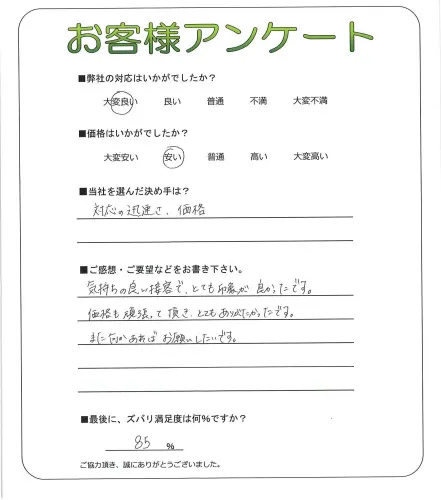 お客様アンケート
■弊社の対応はいかがでしたか?
大変良い 良い 普通 不満 大変不満
■価格はいかがでしたか?
大変安い 安い 普通 高い 大変高い
■当社を選んだ決め手は?
対応の迅速さ、価格
■ご感想・ご要望などをお書き下さい。
気持ちの良い接客で、とても印象が良かったです。
価格も頑張って頂き、とてもありがたかったです。
またなにかあればお願いしたいです。
■最後に、ズバリ満足度は何%ですか?
85 %
ご協力頂き、誠にありがとうございました。